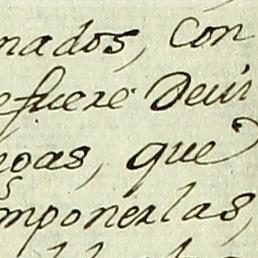 nados, con
efuere Decir
goas, que
mponerlas,